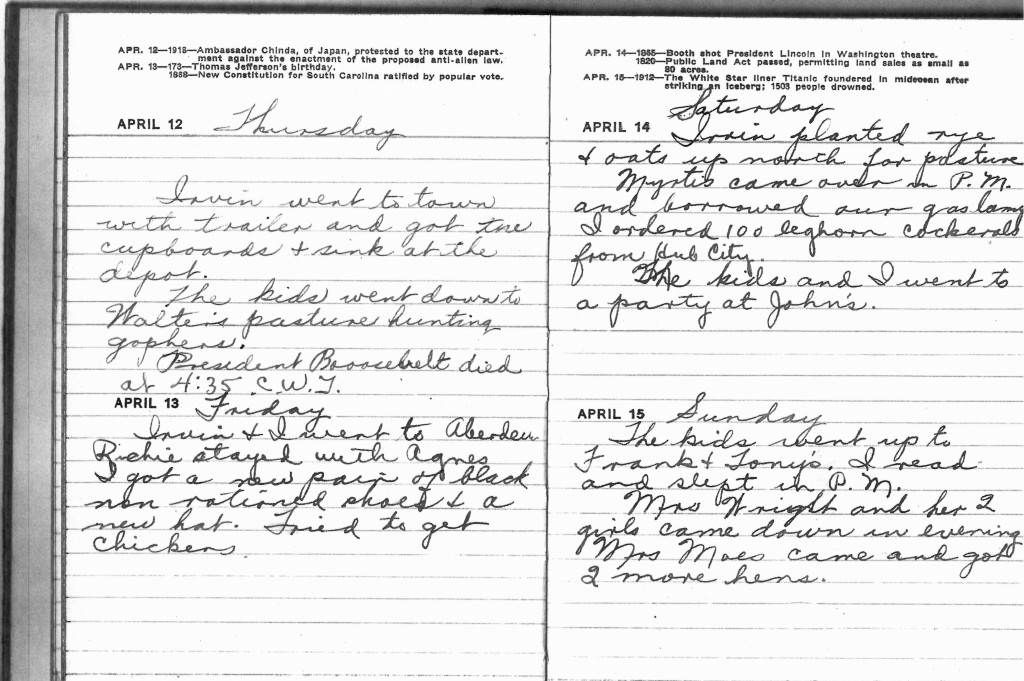 APR. 12—1918—Ambassador Chinda, of Japan, protested to the state depart-
ment against the enactment of the proposed anti-alien law.
APR. 13—173—Thomas Jefferson's birthday.
1868—New Constitution for South Carolina ratified by popular vote.
APRIL 12 Thursday
Irvin went to town
with trailer and got the
cupboards & sink at the
depot.
The kids went down to
Walter's pasture hunting
gophers.
President Roosevelt died
at 4:35 C.W.T.
APRIL 13 Friday
Irvin & I went to Aberdeen
Richie stayed with Agnes
I got a new pair of black
non rationed shoes & a
new hat. Tried to get
chickens
APR. 14—1865—Booth shot President Lincoln in Washington theatre.
1820—Public Land Act passed, permitting land sales as small as
80 acres.
APR. 15—1912—The White Star liner Titanic foundered in midocean after
striking an iceberg; 1503 people drowned.
Saturday
APRIL 14 Irvin planted rye
& oats up north for pasture
Myrtis came over in P.M.
and borrowed our gas lamp
I ordered 100 leghorn cockerals
from Hub City.
The kids and I went to
a party at John's.
APRIL 15 Sunday
The kids went up to
Frank & Tony's. I read
and slept in P.M.
Mrs Wright and her 2
girls came down in evening
Mrs Moes came and got
2 more hens.